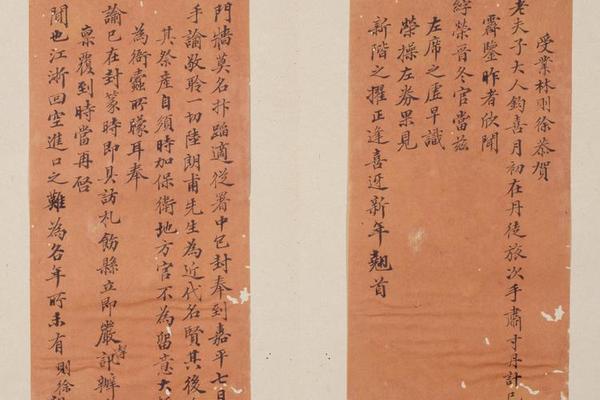 受業林則徐恭賀
老夫子大人鈞喜月初在丹徒旅次手肅寸丹計
霽鑒昨者欣聞
榮晉冬官當茲
左席之虛早識
榮操左券果見
新階之擢正逢喜近新年翹首
門牆莫名抃蹈適從署中包封奉到嘉平七日
手諭敬聆一切陸朗甫先生為近代名賢其後
其祭產自須時加保衛地方官不為留意大
為衙蠹所朦耳奉
諭已在封篆時即具訪札飭縣立即嚴訊辦
稟覆到時當再啓
聞也江浙回空進口之難為各年所未有則徐